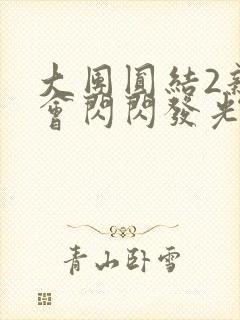 大團圓結2
會閃閃發光
青山卧雪